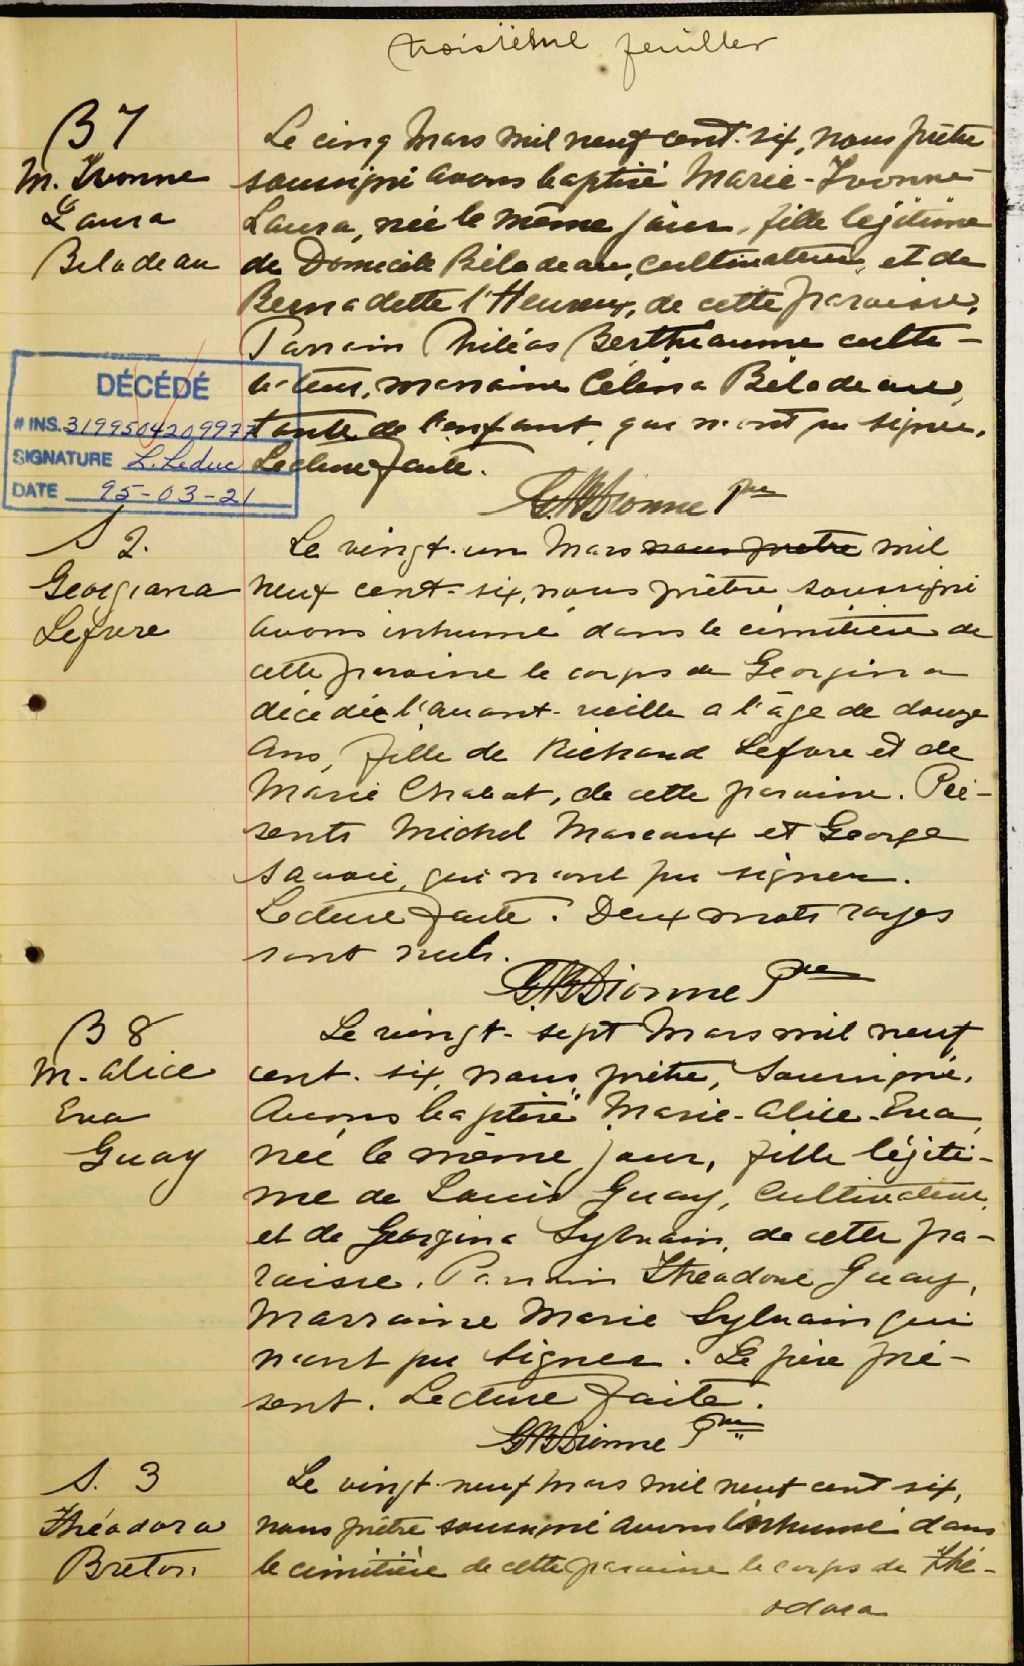 troisième feuillet
B 7
M. Ivonne
Laura
Bilodeau
Le cinq Mars mil neuf cent-six, nous prêtre
soussigné avons baptisé Marie-Ivonne
Laura, née le même jour, fille légitime
de Domicile Bilodeau, cultivateur, et de
Bernadette l'Heureux, de cette paroisse.
Parrain Philéas Berthiaume culti-
vateur, marraine Célina Bilodeau,
tante de l'enfant, qui n'ont pu signer.
Lecture faite.
DÉCÉDÉ
# INS. 3199504209977
SIGNATURE L. Leduc
DATE 95-03-21
G.B. Dionne Ptre
S 2.
Georgiana
Lefvre
Le vingt-un Mars nous prêtre mil
neuf cent-six, nous prêtre soussigné
avons inhumé dans le cimitière de
cette paroisse le corps de Georgina
décédée l'avant-veille a l'âge de douze
ans, fille de Richard Lefvre et de
Marie Chabot, de cette paroisse. Pré-
sents Michel Marcoux et George
Savoie, qui n'ont pu signer.
Lecture faite. Deux mots rayés
sont nuls.
G.B. Dionne Ptre
B 8
M. Alice
Eva
Guay
Le vingt-sept Mars mil neuf
cent-six, nous, prêtre, soussigné,
avons baptisé Marie-Alice-Eva,
née le même jour, fille légiti-
me de Louis Guay, cultivateur,
et de Georgina Sylvain, de cette pa-
roisse. Parrain Théodore Guay,
Marraine Marie Sylvain qui
n'ont pu signer. Le père pré-
sent. Lecture faite.
G.B. Dionne Ptre
S. 3
Théodora
Breton
Le vingt-neuf Mars mil neuf cent six,
nous prêtre soussigné avons inhumé dans
le cimitière de cette paroisse le corps de Thé-
odora